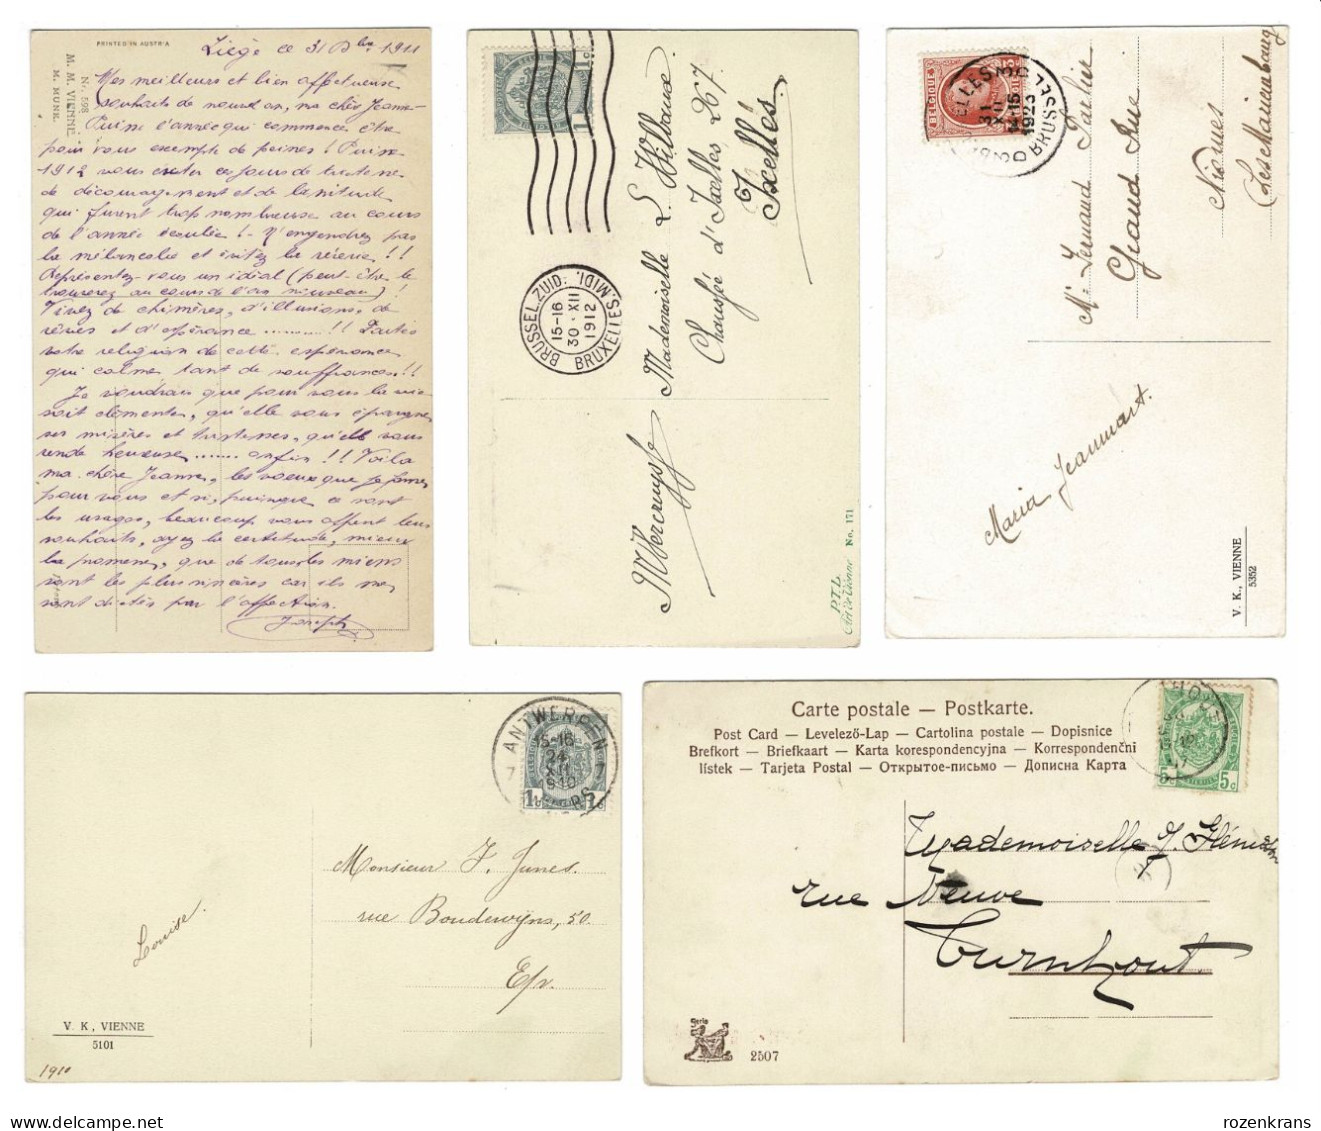 PRINTED IN AUSTRIA
M. M. VIENNE. Nr. 598
M. MUNK.
Liége ce 31 Dbre 1911
Mes meilleurs et bien affectueux
souhaits de nouvel an, ma chère Jeanne.
Puisse l'année qui commence être
pour vous exempte de peines! Puisse
1912 vous éviter ces jours de
de découragement et de lassitude
qui furent trop nombreux au cours
de l'année écoulée! N'engendrez pas
la mélancolie et évitez la rêverie!!
Représentez-vous un idéal (peut-être le
trouverez au cours de l'an nouveau)!
Vivez de chimères, d'illusions, de
rêves et d'espérance ..........!! Faites
votre religion de cette espérance
qui calme tant de souffrances!!
Je voudrais que pour vous la vie
soit clémente, qu'elle vous épargne
ses misères et tristesses, qu'elle vous
rende heureuse ....... enfin!! Voilà
ma chère Jeanne, les voeux que je forme
pour vous et si, puisque ce sont
les usages, beaucoup vous offrent leurs
souhaits, ayez la certitude, mieux
la promesse, que de tous les miens
sont les plus sincères car ils me
sont dictés par l'affection.
Joseph
BRUSSEL.ZUID:
15-16
30·XII
1912
BRUXELLES.MIDI.
Mademoiselle L. Willame
Chaussée d'Ixelles 267.
Ixelles.
MVercruysse
P.T.L.
Art de Vienne No. 171
BELGIQUE
31
XII
14-15
1923
BRUSSEL 3
Mr Fernand Paulier
Grand Rue
Nismes
Maria Jeanmart.
V. K., VIENNE
5352
ANTWERPEN
7 7
24
XII
910
1c 1c
Monsieur F. Junes.
rue Boudewyns, 50.
E/v.
Louise.
V. K., VIENNE
5101
1910
Carte postale — Postkarte.
Post Card — Levelező-Lap — Cartolina postale — Dopisnice
Brefkort — Briefkaart — Karta korespondencyjna — Korrespondenční
lístek — Tarjeta Postal — Открытое-письмо — Дописна Карта
5c 5c
Mademoiselle J.
rue Neuve
Turnhout
Serie
2507
rozenkrans